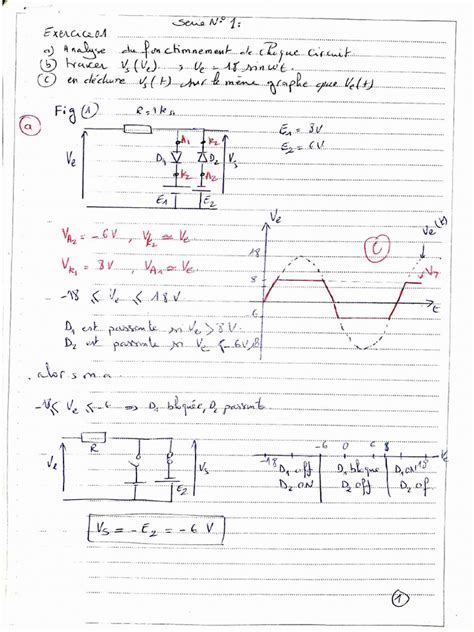 Serie N° 1:
Exercice 01
a) Analyse du fonctionnement de chaque circuit
(b) tracer Vs(Ve) , Ve = 18 sinωt.
(c) en déduire Vs(t) sur le même graphe que Ve(t)
Fig (1)
a
R = 1kΩ
E1 = 8V
E2 = 6V
A1 K2
Ve D1 D2 Vs
K1 A2
E1 E2
VA2 = -6V , VK2 ≃ Ve
VK1 = 8V , VA1 ≃ Ve
-18 ≤ Ve ≤ 18V
D1 est passante si Ve > 8V.
D2 est passante si Ve < -6V
Ve
Ve(t)
C
18
8
6
18
t
alors on a
-18 ≤ Ve ≤ -6 ⇒ D1 bloquée, D2 passante
R
Ve E2 Vs
-18 -6 0 6 8 18 Ve
D1 off D1 bloque D1 ON
D2 ON D2 off D2 of
Vs = -E2 = -6 V
1